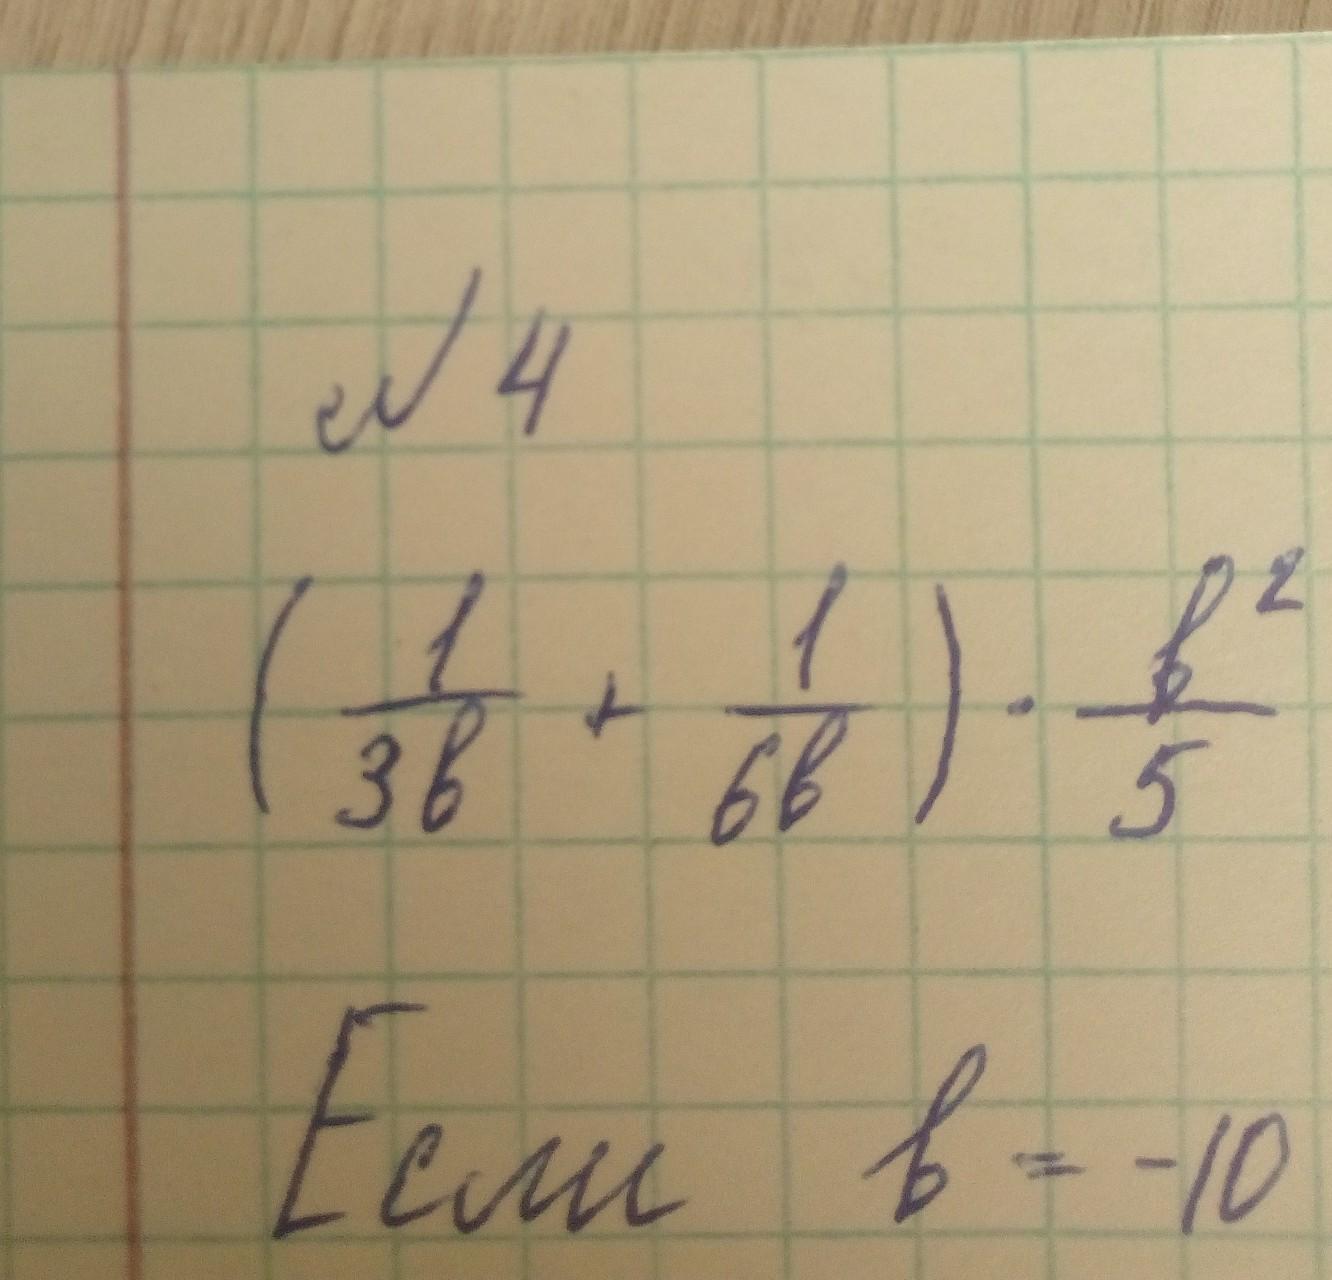 № 4
(1/3b + 1/6b) · b²/5
Если b = -10